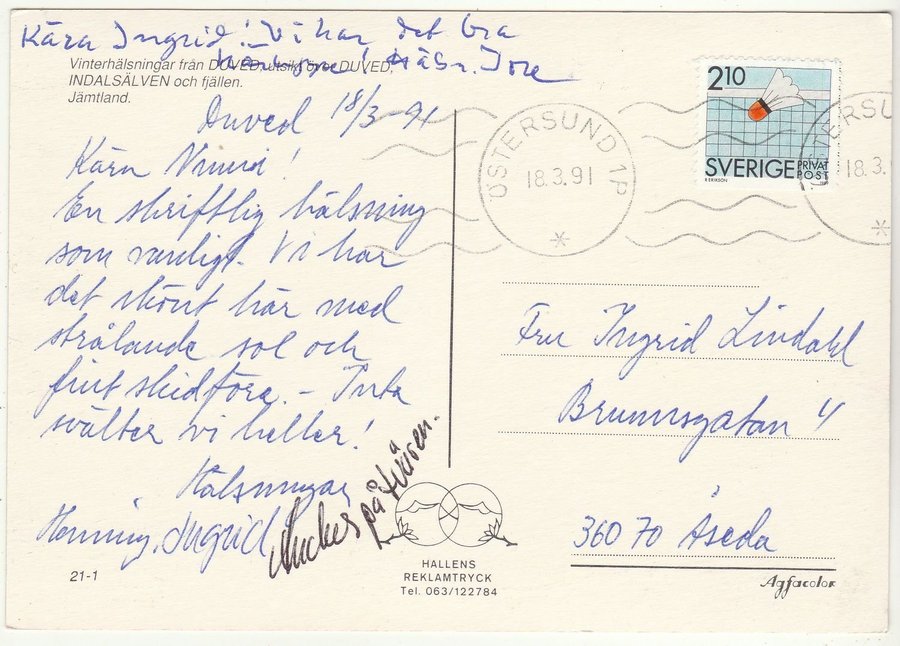 Kära Ingrid! Vi har det bra
häruppe! Hälsn. Tore
Vinterhälsningar från DUVED, utsikt över DUVED,
INDALSÄLVEN och fjällen.
Jämtland.
Duved 18/3-91
Kära Ninni!
En skriftlig hälsning
som vanligt. Vi har
det skönt här med
strålande sol och
fint skidföre. - Inte
svälter vi heller!
Hälsningar
Henning, Ingrid
på tvären.
21-1
HALLENS
REKLAMTRYCK
Tel. 063/122784
2 10
SVERIGE PRIVAT
POST
R ERIKSON
ÖSTERSUND 1P
18.3.91
18.3.
Fru Ingrid Lindahl
Brunnsgatan 4
360 70 Åseda
Agfacolor